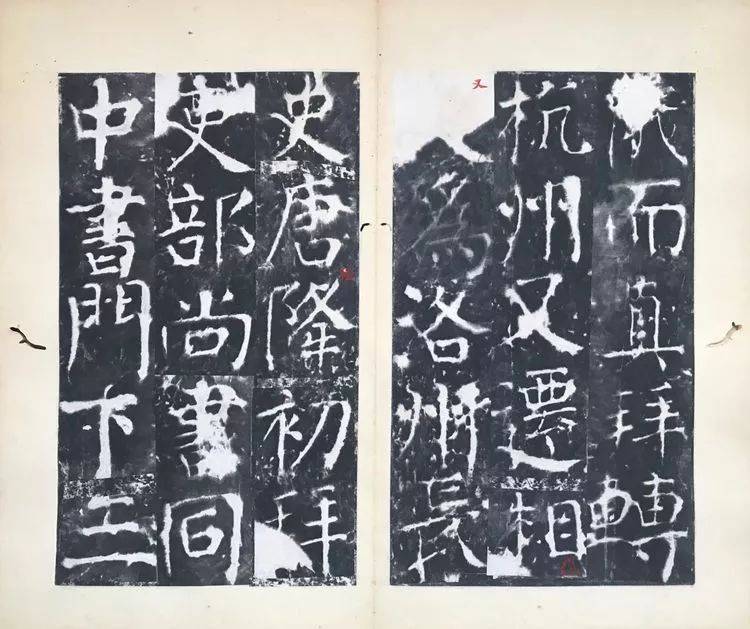 而真拜轉
杭州又遷相
又爲洛州長
史唐隆初拜
吏部尚書同
中書門下三